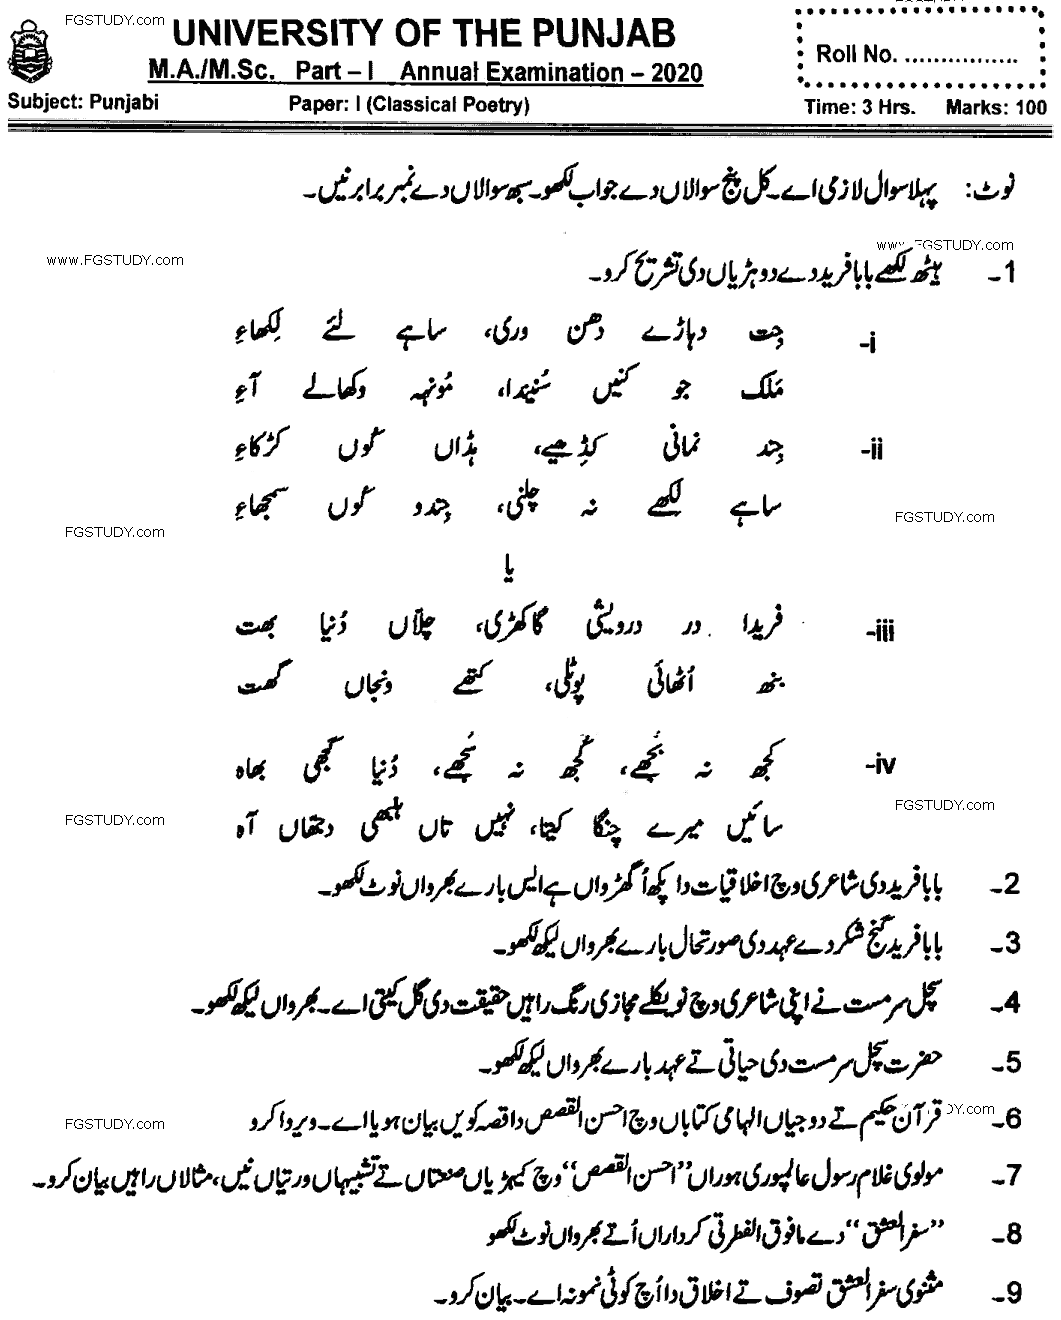 FGSTUDY.com
UNIVERSITY OF THE PUNJAB
M.A./M.Sc. Part – I Annual Examination – 2020
Roll No. ................
Subject: Punjabi Paper: I (Classical Poetry) Time: 3 Hrs. Marks: 100
نوٹ: پہلا سوال لازمی اے۔ کل پنج سوالاں دے جواب لکھو۔ سبھ سوالاں دے نمبر برابر نیں۔
www.FGSTUDY.com
FGSTUDY.com
1۔ ہیٹھ لکھے بابا فرید دے دوہڑیاں دی تشریح کرو۔
i- جِت دہاڑے دھن وری، ساہے لئے لِکھاءِ
مَلک جو کنیں سُنیندا، مُونہہ وکھالے آءِ
ii- جِند نمانی کڈھیے، ہڈاں کُوں کڑکاءِ
ساہے لکھے نہ چلنی، جِندو کُوں سمجھاءِ
FGSTUDY.com
FGSTUDY.com
یا
iii- فریدا در درویشی گاکھڑی، چلّاں دُنیا بھت
بنھ اُٹھائی پوٹلی، کتھے ونجاں گھت
iv- کجھ نہ بُجھے، کُجھ نہ سُجھے، دُنیا گُجھی بھاہ
سائیں میرے چنگا کیتا، نہیں تاں ہنبھی دجھاں آہ
FGSTUDY.com
FGSTUDY.com
2۔ بابا فرید دی شاعری وچ اخلاقیات دا پکھ اُگھڑواں ہے ایس بارے بھرواں نوٹ لکھو۔
3۔ بابا فرید گنج شکر دے عہد دی صورتحال بارے بھرواں لیکھ لکھو۔
4۔ سچل سرمست نے اپنی شاعری وچ نویکلے مجازی رنگ راہیں حقیقت دی گل کیتی اے۔ بھرواں لیکھ لکھو۔
5۔ حضرت سچل سرمست دی حیاتی تے عہد بارے بھرواں لیکھ لکھو۔
6۔ قرآن حکیم تے دوجیاں الہامی کتاباں وچ احسن القصص دا قصہ کویں بیان ہویا اے۔ ویروا کرو
FGSTUDY.com
7۔ مولوی غلام رسول عالمپوری ہوراں ”احسن القصص“ وچ کیہڑیاں صنعتاں تے تشبیہاں ورتیاں نیں، مثالاں راہیں بیان کرو۔
8۔ ”سفر العشق“ دے مافوق الفطرتی کرداراں اُتے بھرواں نوٹ لکھو
9۔ مثنوی سفر العشق تصوف تے اخلاق دا اُچ کوٹی نمونہ اے۔ بیان کرو۔